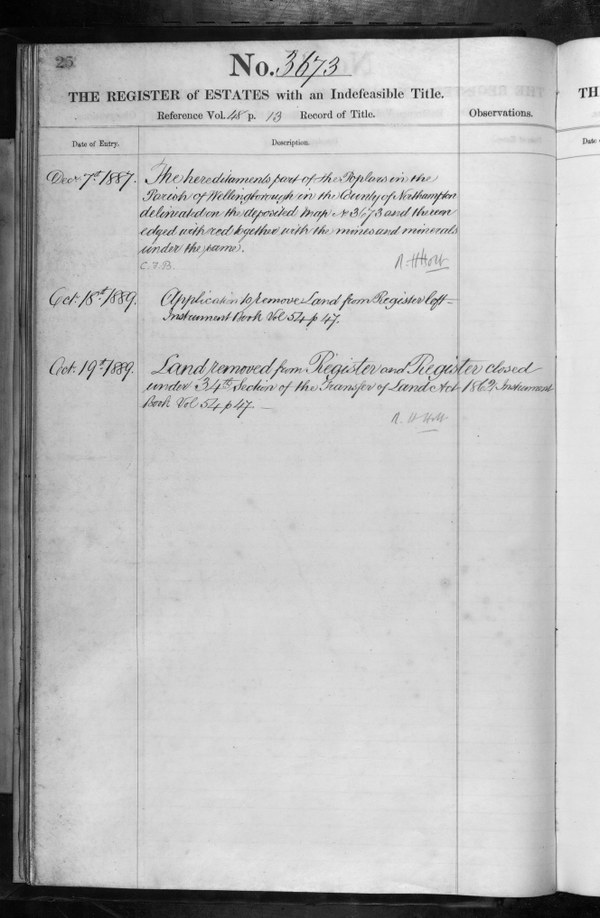 25
No. 3673
THE REGISTER of ESTATES with an Indefeasible Title.
Reference Vol. 48 p. 13 Record of Title.
Observations.
Date of Entry.
Description.
Decr 7th 1887.
The hereditaments part of the Poplars in the
Parish of Wellingborough in the County of Northampton
delineated on the deposited Map No 3673 and thereon
edged with red together with the mines and minerals
under the same.
C.T.B.
R. H. Holt
Oct. 18th 1889.
Application to remove Land from Register left =
Instrument Book Vol 54 p 47.
Oct. 19th 1889.
Land removed from Register and Register closed
under 34th Section of the Transfer of Land Act 1862, Instrument
Book Vol 54 p 47. —
R. H. Holt
TH
Date